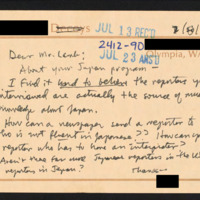 JUL 13 REC'D
2412-90
JUL 23 ANS'D
Olympia, W
Dear Mr. Lead:
About your Japan program
I find it hard to believe the reporters y
interviewed are actually the source of muc
knowledge about Japan.
How can a newspaper send a reporter to
who isn't fluent in Japanese?? How can yo
reporter who has to have an interpreter?
Aren't there far more Japanese reporters in the U
reporters in Japan?
Thanks